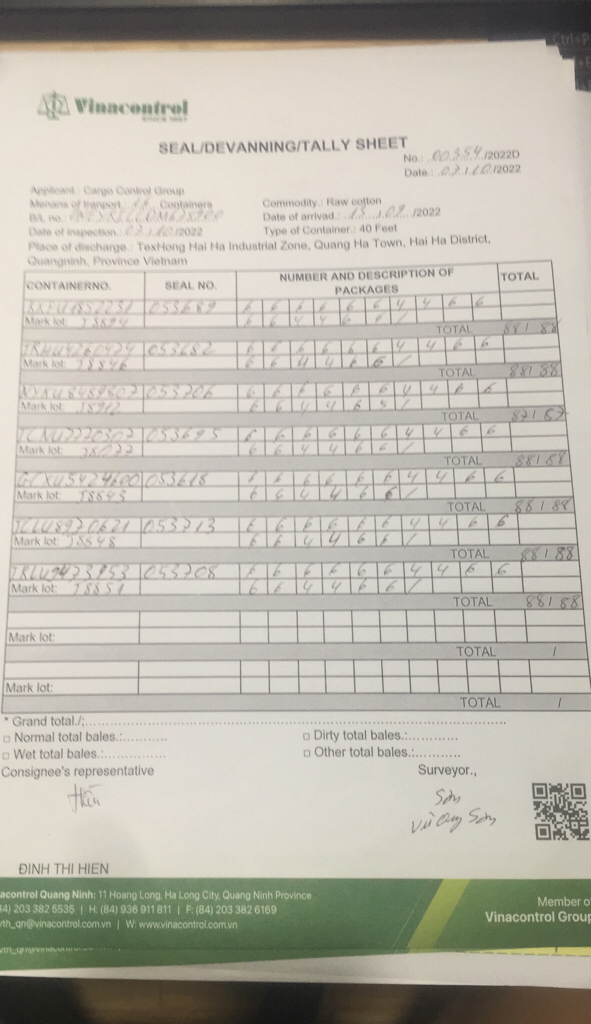 Ctrl+P
Vinacontrol
SINCE 1957
SEAL/DEVANNING/TALLY SHEET
No.: 00354/2022D
Date.: 07/10/2022
Applicant.: Cargo Control Group
Menans of tranport.: Containers
Commodity.: Raw cotton
B/L no.
Date of arrivad.: 13/09/2022
Date of inspection.: 07/10/2022
Type of Container.: 40 Feet
Place of discharge.: TexHong Hai Ha Industrial Zone, Quang Ha Town, Hai Ha District,
Quangninh, Province Vietnam
CONTAINERNO. SEAL NO. NUMBER AND DESCRIPTION OF PACKAGES TOTAL
053689 6 6 6 6 6 6 4 4 6 6
Mark lot: 6 6 4 4 6 6 /
TOTAL 88/88
053682 6 6 6 6 6 6 4 4 6 6
Mark lot: 6 6 4 4 6 6 /
TOTAL 88/88
053706 6 6 6 6 6 6 4 4 6 6
Mark lot: 6 6 4 4 6 5 /
TOTAL 87/87
053695 6 6 6 6 6 6 4 4 6 6
Mark lot: 6 6 4 4 6 6 /
TOTAL 88/88
GCXU5424600 053618 6 6 6 6 6 6 4 4 6 6
Mark lot: 6 6 4 4 6 6 /
TOTAL 88/88
TCLU8920621 053713 6 6 6 6 6 6 4 4 6 6
Mark lot: 6 6 4 4 6 6 /
TOTAL 88/88
053708 6 6 6 6 6 6 4 4 6 6
Mark lot: 6 6 4 4 6 6 /
TOTAL 88/88
Mark lot:
TOTAL /
Mark lot:
TOTAL /
* Grand total./:
Normal total bales.:
Dirty total bales.:
Wet total bales.:
Other total bales.:
Consignee's representative
Surveyor.,
Hiền
Sơn
Vũ Sơn
ĐINH THI HIEN
acontrol Quang Ninh: 11 Hoang Long, Ha Long City, Quang Ninh Province
34) 203 382 5535 | H: (84) 936 911 811 | F: (84) 203 382 6169
vth_qn@vinacontrol.com.vn | W: www.vinacontrol.com.vn
Member o
Vinacontrol Group